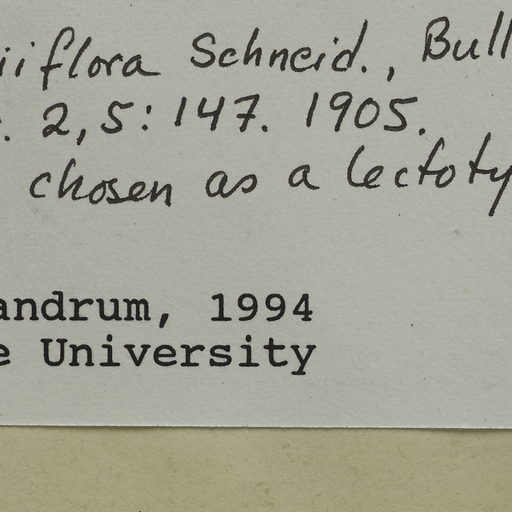 iiflora Schneid., Bull
. 2, 5: 147. 1905.
chosen as a lectoty
andrum, 1994
e University